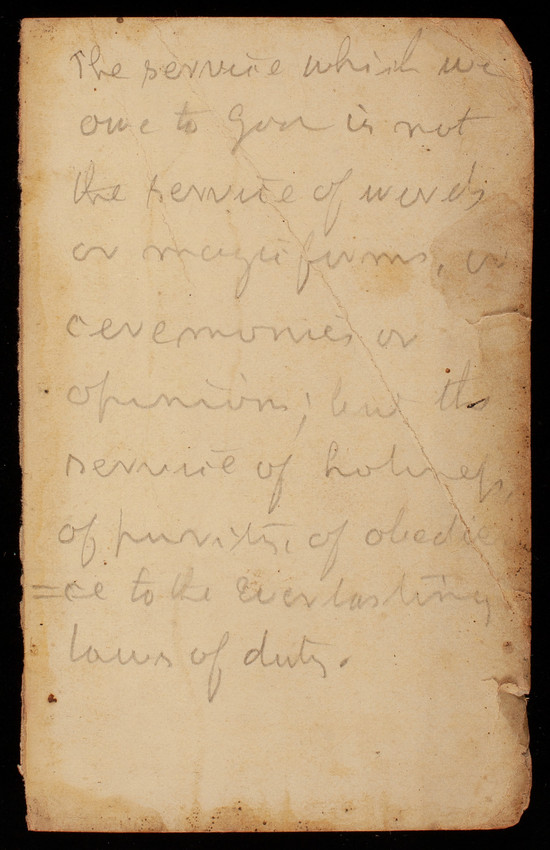 The service which we
owe to God is not
the service of words
or magic forms, or
ceremonies or
opinions; but the
service of holiness,
of purity, of obedie
=ce to the Everlasting
laws of duty.